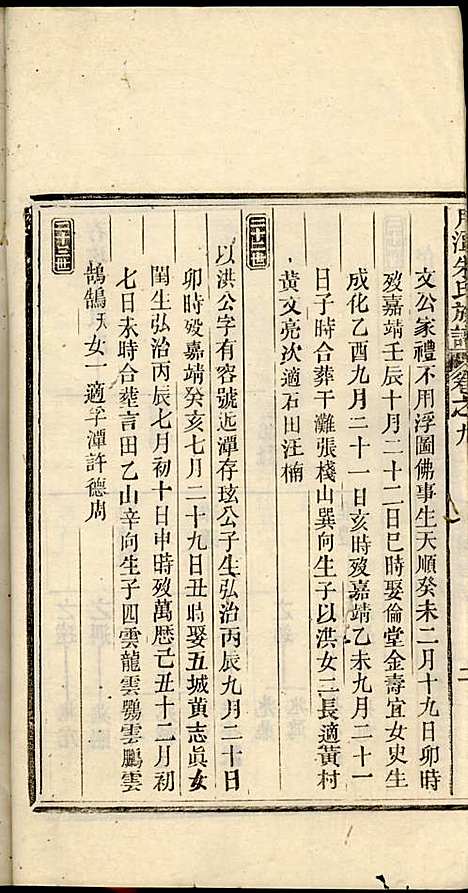 朱氏族譜 卷之九
文公家禮不用浮圖佛事生天順癸未二月十九日卯時
歿嘉靖壬辰十月二十二日巳時娶倫堂金壽宜女史生
成化乙酉九月二十一日亥時歿嘉靖乙未九月二十一
日子時合葬干灘張棧山巽向生子以洪女二長適黃村
黃文亮次適石田汪楠
二十二世
以洪公字有容號近潭存玹公子生弘治丙辰九月二十日
卯時歿嘉靖癸亥七月二十九日丑時娶五城黃志眞女
閏生弘治丙辰七月初十日申時歿萬歷己丑十二月初
七日未時合葬言田乙山辛向生子四雲龍雲鸚雲鵬雲
鵠鵠夭女一適浮潭許德周
二十三世